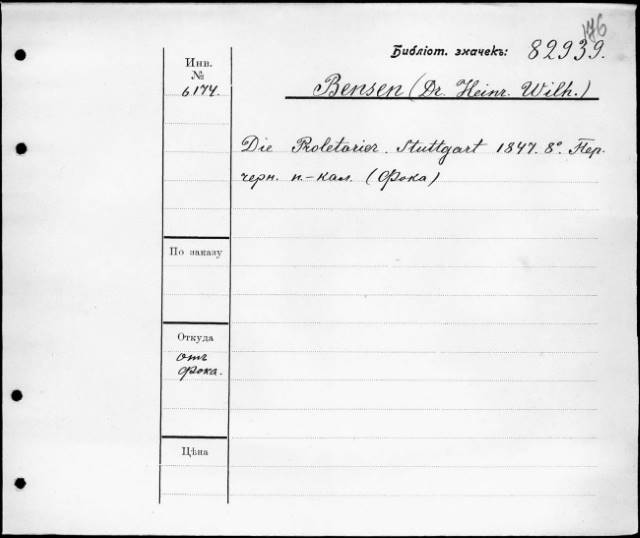 176
Библіот. значекъ: 82939.
Инв.
№
6174.
Bensen (Dr. Heinr. Wilh.)
Die Proletarier. Stuttgart 1847. 8º. Пер.
черн. п.-кал. (Фока)
По заказу
Откуда
отъ
Фока.
Цѣна